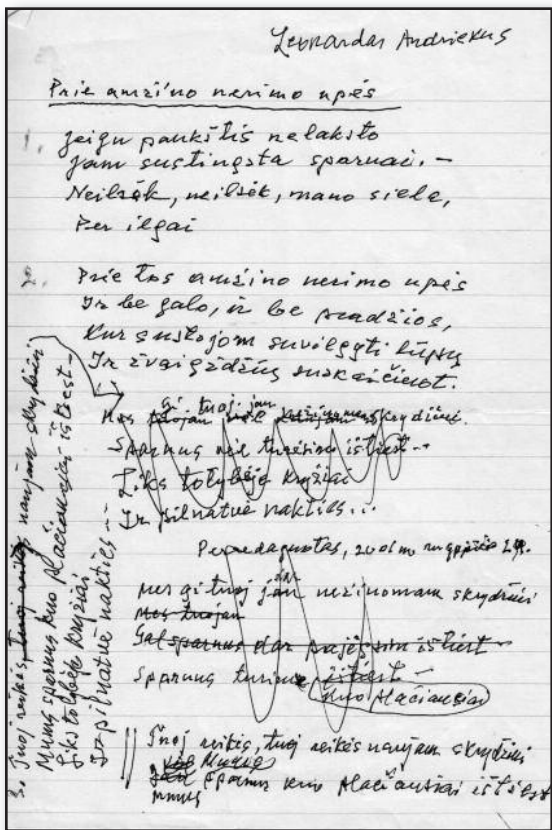 Leonardas Andriekus
Prie amžino nerimo upės
1. Jeigu paukštis nelaksto
Jam sustingsta sparnai. –
Neilsėk, neilsėk, mano siela,
Per ilgai
2. Prie tos amžino nerimo upės
Ir be galo, ir be pradžios,
Kur sustojom suvilgyti lūpų
Ir žvaigždžių suskaičiuot.
Mes gi tuoj jau skrydžiui
Sparnus vėl turėsim ištiest –
Liks tolybėje kryžiai
Ir pilnatvė nakties...
Perredaguotas, 2001 m rugpjūčio
Mes gi tuoj jau nežinomam skrydžiui
Mes tuojau
Gal sparnus dar pajėgsim ištiest –
Sparnus turime ištiest –
kuo plačiausiai
Tuoj reikės, tuoj reikės naujam skrydžiui
Mums
Sparnus kuo plačiausiai ištiest
mums
3. Tuoj reikės, tuoj reikės naujam skrydžiui
Mums sparnus kuo plačiausiai ištiest –
Liks tolybėje kryžiai
Ir pilnatvė nakties...